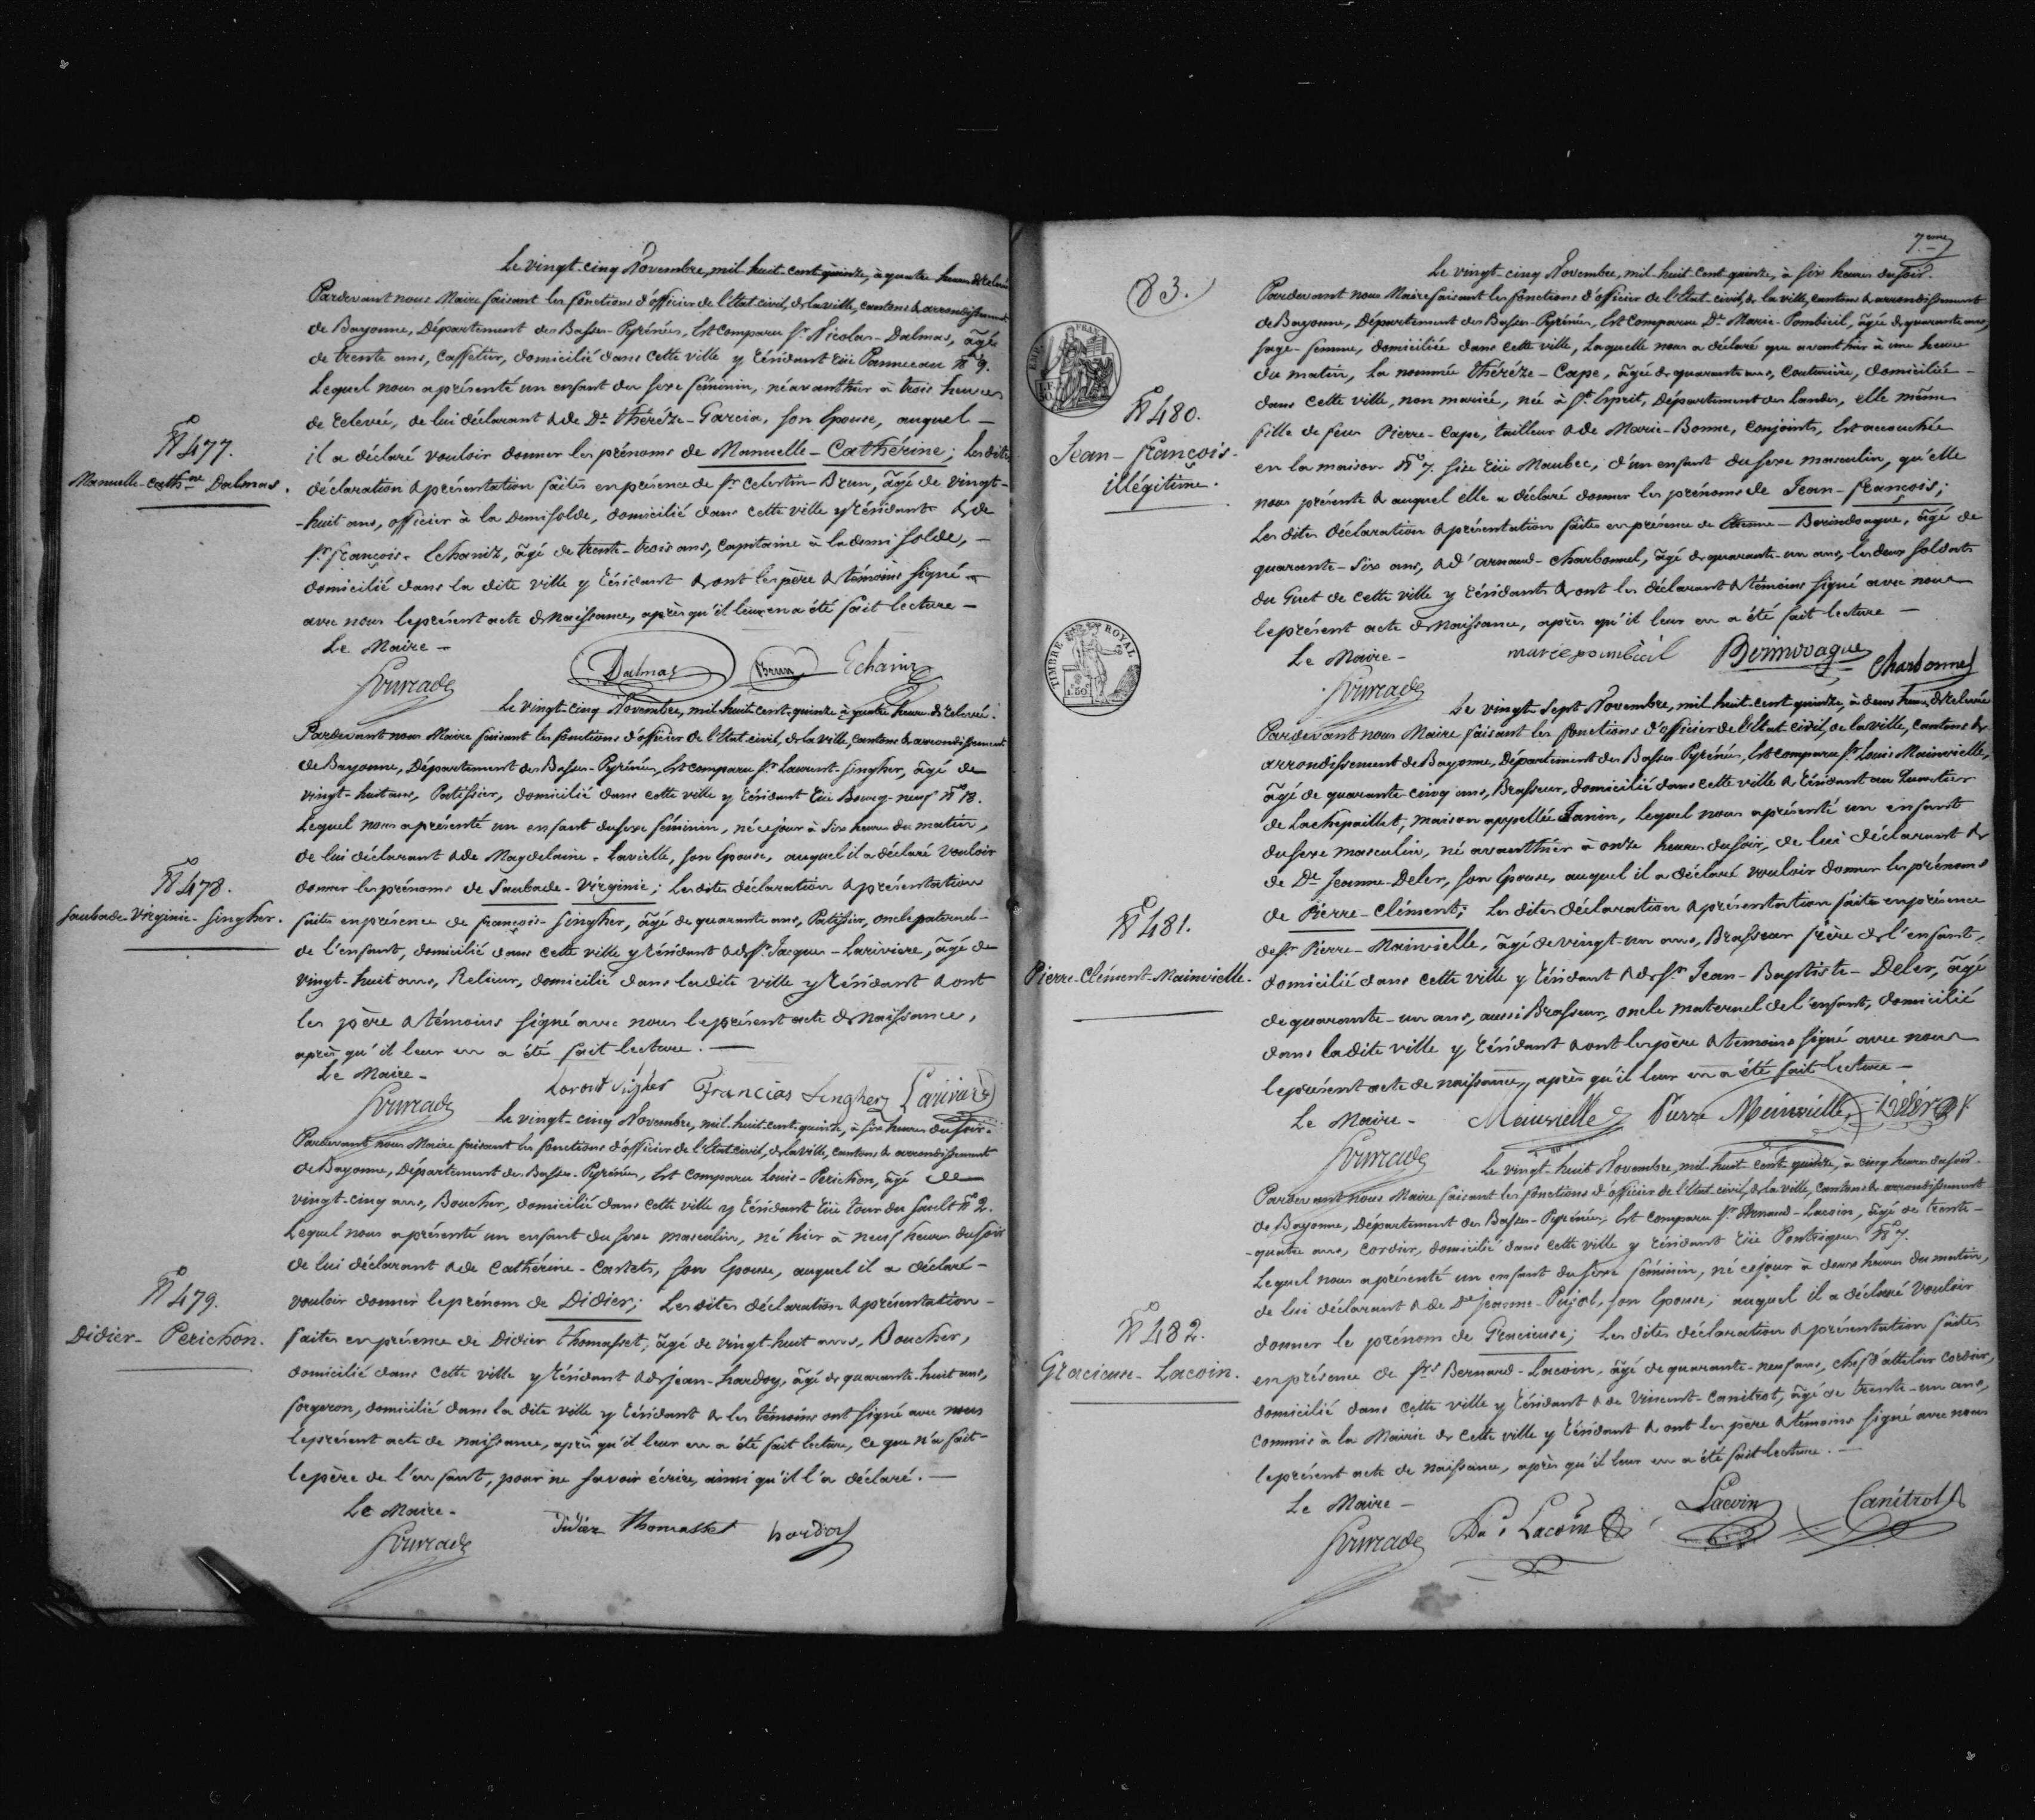 Le vingt-cinq Novembre, mil-huit-cent-quinze, à quatre heures de relevé
Pardevant nous Maire faisant les fonctions d'officier de l'Etat civil, de la ville, cantons & arrondissement
de Bayonne, Département des Basses-Pyrénées, Est comparu Sr. Nicolas-Dalmas, âgé
de trente ans, Caffetier, domicilié dans cette ville y résidant rüe Pannecau No. 9.
Lequel nous a présenté un enfant du sexe féminin, né avanthier à trois heures
de relevée, de lui déclarant & de De. Thérèze-Garcia, son épouse, auquel —
il a déclaré vouloir donner les prénoms de Manuelle-Cathérine; Lesdites
No. 477.
Manuelle-Cathne. Dalmas.
déclaration & présentation faites en présence de Sr. Celestin-Brun, âgé de vingt-
-huit ans, officier à la Demi solde, domicilié dans cette ville y résidant & de
Sr. François-Echaniz, âgé de trente-trois ans, Capitaine à la demi solde, —
domicilié dans la dite ville y résidant & ont les père & témoins signé
avec nous le présent acte de Naissance, après qu'il leur en a été fait lecture —
Le Maire —
Dalmas Brun Echaniz
Le vingt-cinq Novembre, mil-huit-cent-quinze à quatre heures de relevée.
Pardevant nous Maire faisant les fonctions d'officier de l'Etat civil, de la ville, cantons & arrondissement
de Bayonne, Département des Basses-Pyrénées, Est comparu Sr. Laurent-Singher, âgé de
vingt-huit ans, Patissier, domicilié dans cette ville y résidant rüe Bourg-neuf No. 18.
Lequel nous a présenté un enfant du sexe féminin, né ce jour à six heures du matin,
de lui déclarant & de Magdelaine-Lavielle, son épouse, auquel il a déclaré vouloir
No. 478.
Saubade-Virginie-Singher.
donner les prénoms de Saubade-Virginie; Lesdites déclaration & présentation
faites en présence de François-Singher, âgé de quarante ans, Patissier, oncle paternel-
de l'enfant, domicilié dans cette ville y résidant & de Sr. Jacques-Lariviere, âgé de
vingt-huit ans, Relieur, domicilié dans la dite ville y résidant & ont
les père & témoins signé avec nous le présent acte de Naissance,
après qu'il leur en a été fait lecture. —
Le Maire —
Francias Singher Larivière
Le vingt-cinq Novembre, mil-huit-cent-quinze, à six heures du soir.
Pardevant nous Maire faisant les fonctions d'officier de l'Etat civil, de la ville, cantons & arrondissement
de Bayonne, Département des Basses-Pyrénées, Est comparu Louis-Perichon, âgé de
vingt-cinq ans, Boucher, domicilié dans cette ville y résidant rüe Tour du Sault No. 2.
Lequel nous a présenté un enfant du sexe masculin, né hier à neuf heures du soir
de lui déclarant & de Cathérine-Castets, son épouse, auquel il a déclaré-
No. 479.
Didier-Perichon.
vouloir donner le prénom de Didier; Lesdites déclaration & présentation-
faites en présence de Didier Thomasset, âgé de vingt-huit ans, Boucher,
domicilié dans cette ville y résidant & de jean-hardoy, âgé de quarante-huit ans,
forgeron, domicilié dans la dite ville y résidant & les témoins ont signé avec nous
le présent acte de naissance, après qu'il leur en a été fait lecture, ce que n'a fait-
le père de l'enfant, pour ne savoir écrire, ainsi qu'il l'a déclaré. —
Le Maire —
Didier Thomasset hardoy
7.eme
83.
Le vingt-cinq Novembre, mil-huit-cent-quinze, à six heures du soir.
Pardevant nous Maire faisant les fonctions d'officier de l'Etat civil, de la ville, cantons & arrondissement
de Bayonne, Département des Basses-Pyrénées, Est comparue De. Marie-Pombieil, âgée de quarante ans,
sage-femme, domiciliée dans cette ville, Laquelle nous a déclaré que avant hier à une heure
du matin, la nommée Thérèze-Cape, âgée de quarante ans, Couturière, domiciliée-
dans cette ville, non mariée, née à St. Esprit, Département des Landes, elle même
No. 480.
Jean-François-
illégitime.
fille de feu Pierre-Cape, tailleur & de Marie-Bonne, conjoints, Est accouchée
en la maison No. 7. sise rüe Maubec, d'un enfant du sexe masculin, qu'elle
nous présente & auquel elle a déclaré donner les prénoms de Jean-François;
Lesdites déclaration & présentation faites en présence de Etienne-Borindoague, âgé de
quarante-six ans, & d'arnaud-Charbonnel, âgé de quarante-un ans, les deux soldats
du Guet de cette ville y résidants & ont les déclarant & témoins signé avec nous
le présent acte de Naissance, après qu'il leur en a été fait lecture —
TIMBRE ROYAL
Le Maire —
marie pombieil Charbonnel
Le vingt-sept Novembre, mil-huit-cent-quinze, à deux heures de relevée
Pardevant nous Maire faisant les fonctions d'officier de l'Etat civil, de la ville, cantons &
arrondissement de Bayonne, Département des Basses-Pyrénées, Est comparu Sr. Louis Mainvielle,
âgé de quarante-cinq ans, Brasseur, domicilié dans cette ville & résidant au quartier
de Lachepaillet, maison appellée Janin, Lequel nous a présenté un enfant
du sexe masculin, né avanthier à onze heures du soir, de lui déclarant &
de De. Jeanne-Deler, son épouse, auquel il a déclaré vouloir donner les prénoms
No. 481.
Pierre-Clément-Mainvielle.
de Pierre-Clément; Lesdites déclaration & présentation faite en présence
de Sr. Pierre-Mainvielle, âgé de vingt-un ans, Brasseur frère de l'enfant,
domicilié dans cette ville y résidant & de Sr. Jean-Baptiste-Deler, âgé
de quarante-un ans, aussi Brasseur, oncle maternel de l'enfant, domicilié
dans la dite ville y résidant & ont les père & temoins signé avec nous
le présent acte de naissance, après qu'il leur en a été fait lecture —
Le Maire —
Mainvielle Pierre Meinvielle Deler
Le vingt-huit Novembre, mil-huit-cent-quinze, à cinq heures du soir-
Pardevant nous Maire faisant les fonctions d'officier de l'Etat civil, de la ville, cantons & arrondissement
de Bayonne, Département des Basses-Pyrénées, Est comparu Sr. Arnaud-Lacoin, âgé de trente-
-quatre ans, cordier, domicilié dans cette ville y résidant rüe Pontriques No. 7.
Lequel nous a présenté un enfant du sexe féminin, né ce jour à deux heures du matin,
de lui déclarant & de De. Jeanne-Pujol, son épouse; auquel il a déclaré vouloir
No. 482.
Gracieuse-Lacoin.
donner le prénom de Gracieuse; Lesdites déclaration & présentation faites
en présence de Srs. Bernard-Lacoin, âgé de quarante-neuf ans, chef d'attelier cordier,
domicilié dans cette ville y résidant & de Vincent-Canitrot, âgé de trente-un ans,
commis à la Mairie de cette ville y résidant & ont les père & témoins signé avec nous
le présent acte de naissance, après qu'il leur en a été fait lecture. —
Le Maire —
Lacoin Lacoin Canitrot